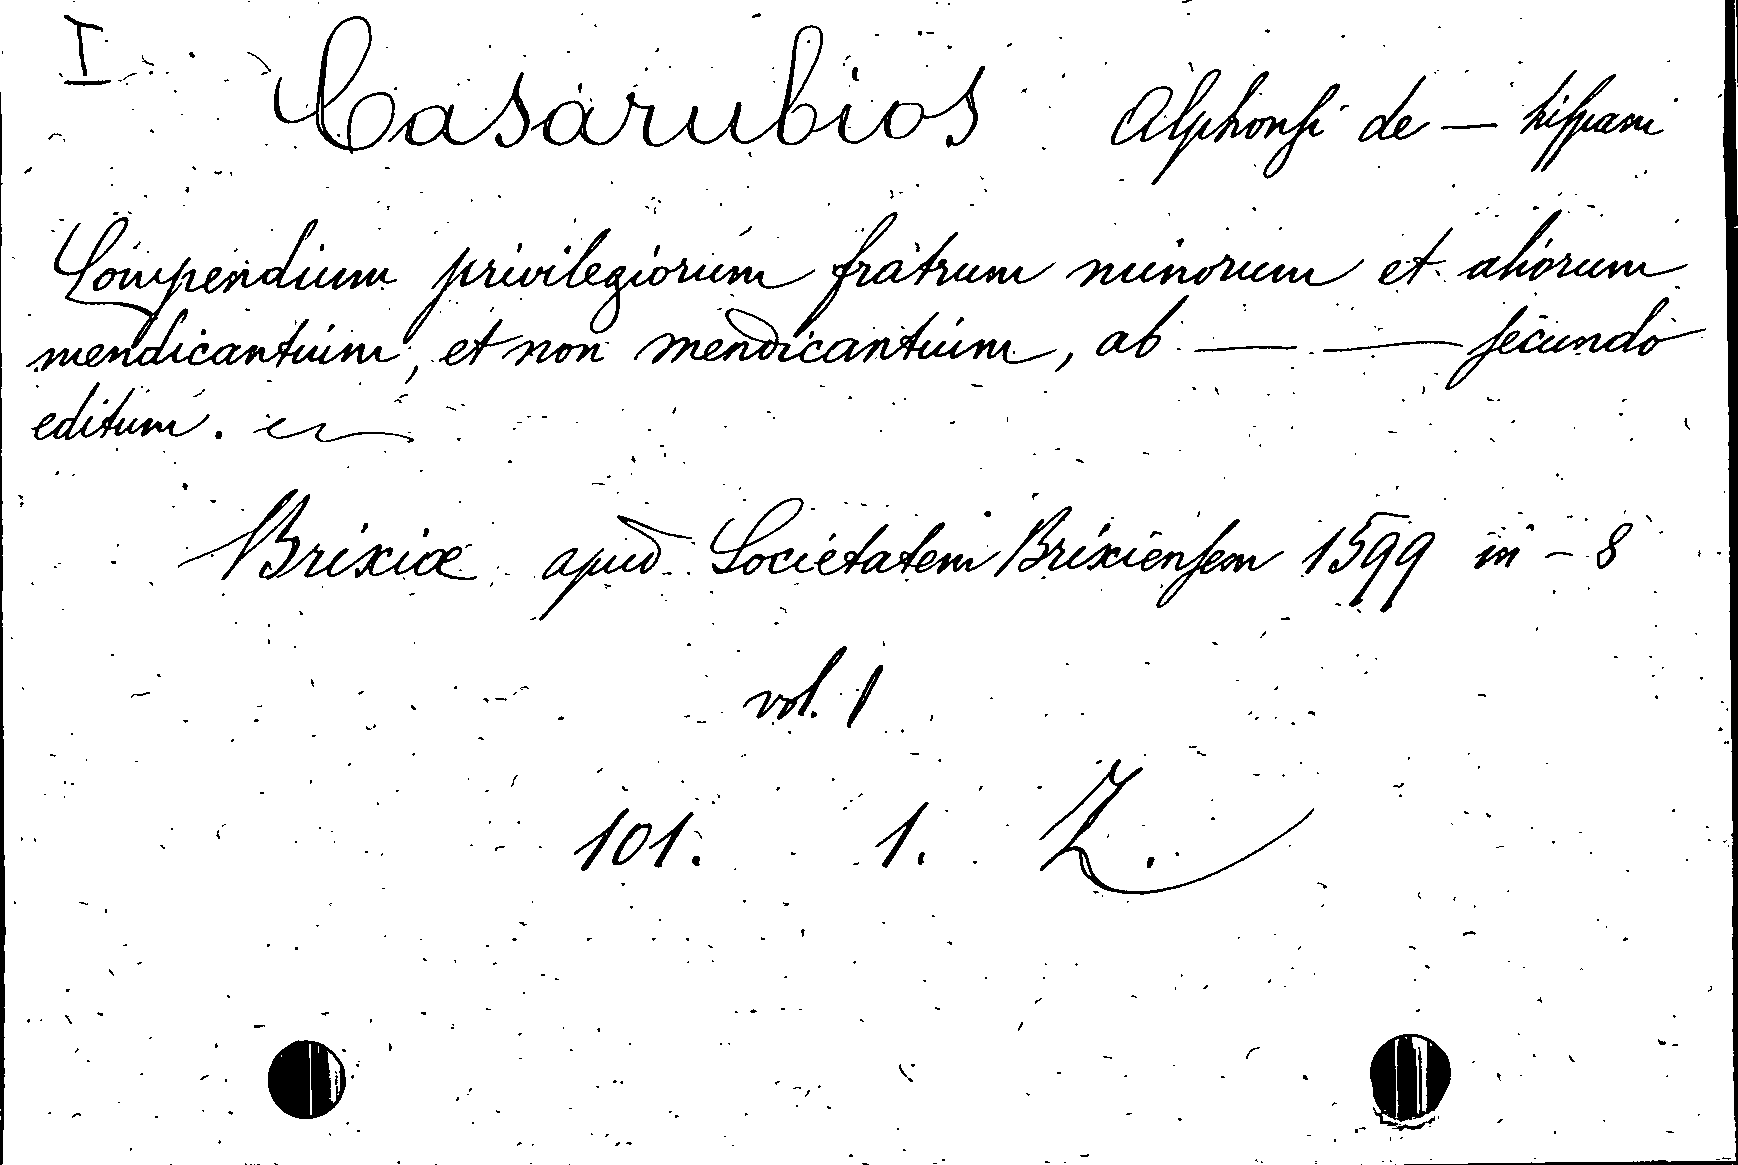 I Casarubios Alphonsi de — hispani
Compendium privilegiorum fratrum minorum et aliorum
mendicantium, et non mendicantium, ab — — secundo
editum.
Brixiæ apud Societatem Brixiensem 1599 in - 8
vol. 1
101. 1. Z.